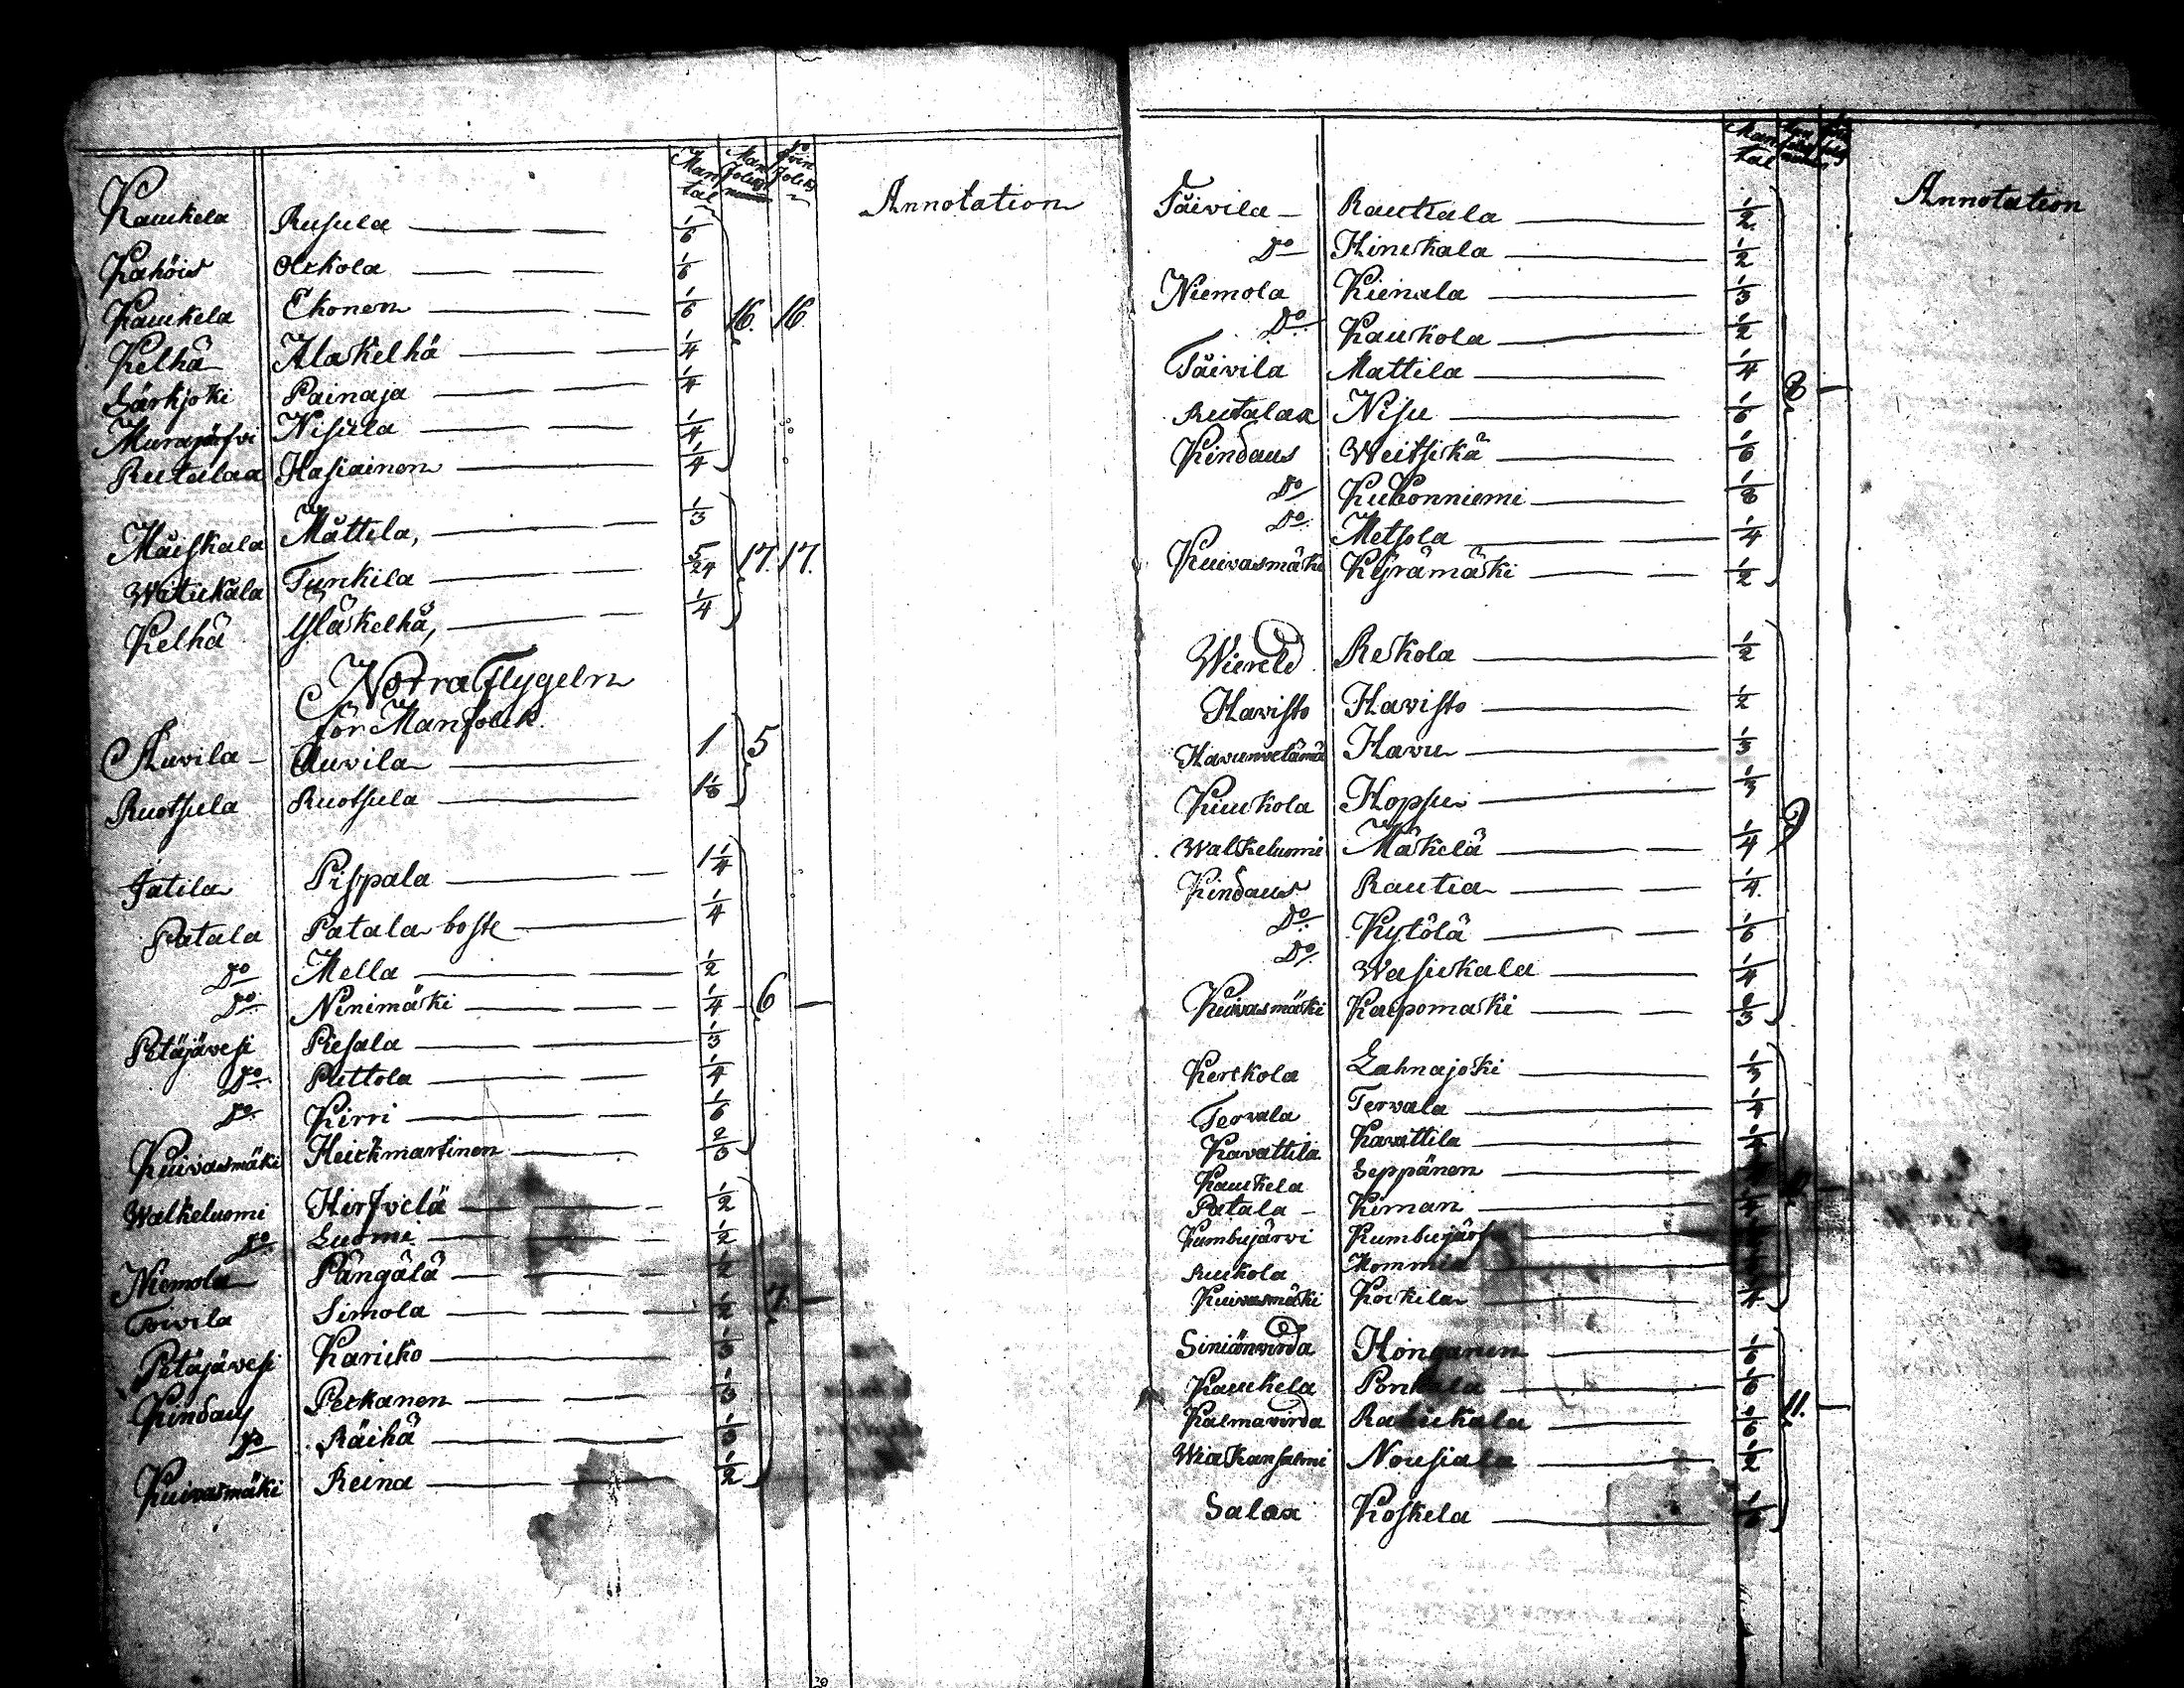 Man tal Man folcks num̄ Do Qvin folcks Annotation
Kaukela Rusula 1/6
Kahöis Olckola 1/6
Kaukela Ekonen 1/6 16. 16.
Kelhä Alaskelhä 1/4
Särkjoki Painaja 1/4
Murajärfvi Nisula 1/4
Rutalaa Hasiainen 1/4
Mäiskala Mattila, 1/3
Witickala Tunkila 5/24 17. 17.
Kelhä Yläskelhä, 1/4
Norra Flygeln
för Manfolck.
Auvila Auvila 1 5
Ruotsula Ruotsula 1 1/6
Jatila Pispala 1 1/4
Patala Patala boste 1/4
Do Mella 1/2
Do Ninimäki 1/4 6
Petäjävesi Piesala 1/3
Do Puttola 1/4
Do Kirri 1/6
Kuivasmäki Heickmartinen 2/3
Walkeluomi Hirfvelä 1/2
Do Luomi 1/2
Niemola Pängälä 1/2
Toivila Simola 1/2 7.
Petäjävesi Karicko 1/3
Kindaus Peckanen 1/3
Do Räihä 1/3
Kuivasmäki Reina 1/2
Man tal Annotation
Täivila Rautiala 1/2
Do Hinckala 1/2
Niemola Kienala 1/3
Do Kauckola 1/2
Täivila Mattila 1/4 8
Rutalaa Nisu 1/6
Kindaus Weitsikä 1/6
Do Kukonniemi 1/8
Do Metsola 1/4
Kuivasmäki Kyrämäki 1/2
Wierelä Reckola 1/2
Havisto Havisto 1/2
Havunvetämä Havu 1/3
Kuukola Hoppu 1/3
Walkeluomi Mäkelä 1/4 9
Kindaus Rautia 1/4.
Do Kytölä 1/6
Do Wasickala 1/4
Kuivasmäki Karpomäki 2/3
Kerckola Lahnajoki 1/3
Tervala Tervala 1/4
Kavattila Kavattila 1/4
Kaukela Seppänen
Patala Kiman
Kumbujärvi Kumbujärf
Ruckola Mommila
Kuivasmäki Kockela 1/4
Siniänvirda Honganen 1/6
Kaukela Ponkala 1/6
Kalmavirda Rahickala 11.
Wiakansalmi Nousiala 1/2
Salax Koskela 1/6